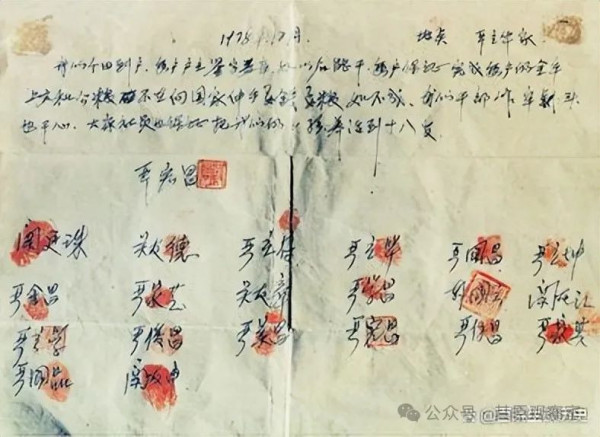 1978年12月 地点 严立华家
我们分田到户,每户户主签字盖章,如以后能干,每户保证完成每户的全年
上交和公粮 不在向国家伸手要钱要粮,如不成,我们干部作牢剎头
也干心,大家社员也保证把我们的小孩养活到十八岁
严宏昌
关廷珠 关友德 严立符 严立华 严国昌 严立坤
严金昌 严家芝 关友章 严学昌 韩国云 关友江
严立学 严俊昌 严美昌 严宏昌 严付昌 严家其
严国品 关友申
公众号